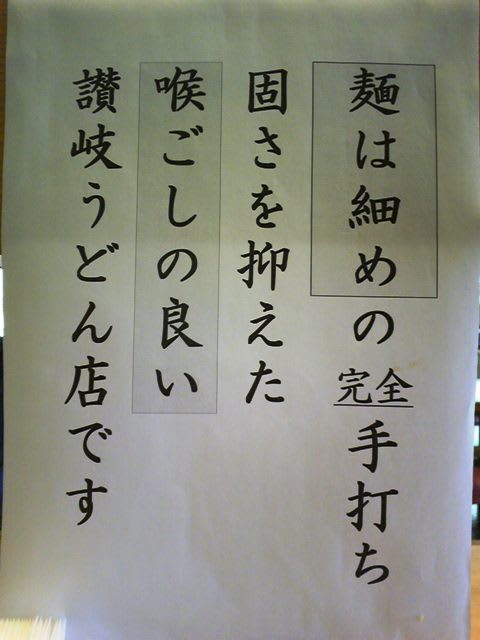 麺は細めの完全手打ち
固さを抑えた
喉ごしの良い
讃岐うどん店です